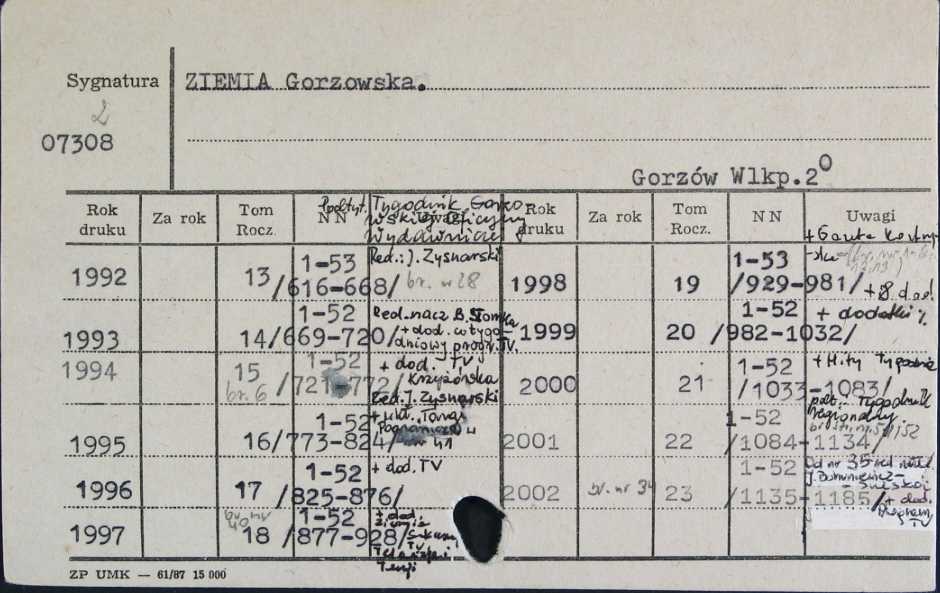 Sygnatura ZIEMIA Gorzowska.
2
07308
Gorzów Wlkp.2⁰
Rok druku Za rok Tom Rocz. NN Uwagi Rok druku Za rok Tom Rocz. NN Uwagi
Podtyt. Tygodnik Gorzowskiej Oficyny Wydawniczej
1992 13 1-53 /616-668/ Red.: J. Zysnarski br. nr 28
1993 14 1-52 /669-720/ Red. nacz B. Słomka + dod. cotygodniowy progr. TV.
1994 15 br. 6 1-52 /721-772/ + dod. TV Krzyżówka Red. J. Zysnarski
1995 16 1-52 /773-824/ nr 41
1996 17 1-52 /825-876/ + dod. TV
1997 br nr 40 18 1-52 /877-928/ + dod.
1998 19 1-53 /929-981/ + Gazeta + 8 dod.
1999 20 1-52 /982-1032/ + dodatki
2000 21 1-52 /1033-1083/ + Hity Tygodnia
2001 22 1-52 /1084-1134/ podt. Tygodnik regionalny
2002 br. nr 34 23 1-52 /1135-1185/ Od nr 35 red. + dod. Program TV
ZP UMK — 61/87 15 000